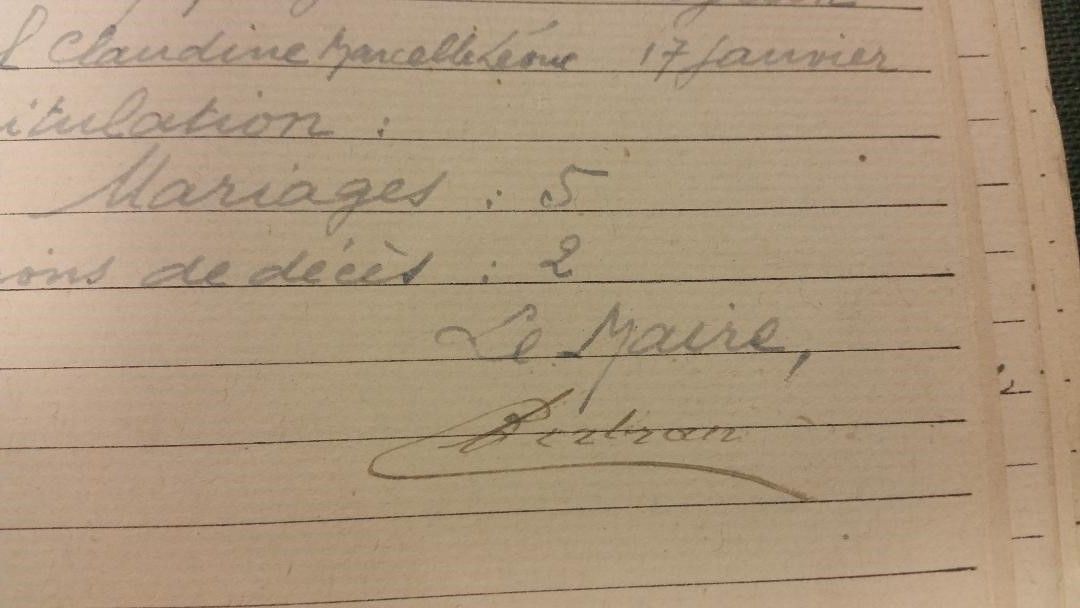 Claudine Marcelle Léone 17 janvier
itulation :
Mariages : 5
ions de décès : 2
Le Maire,